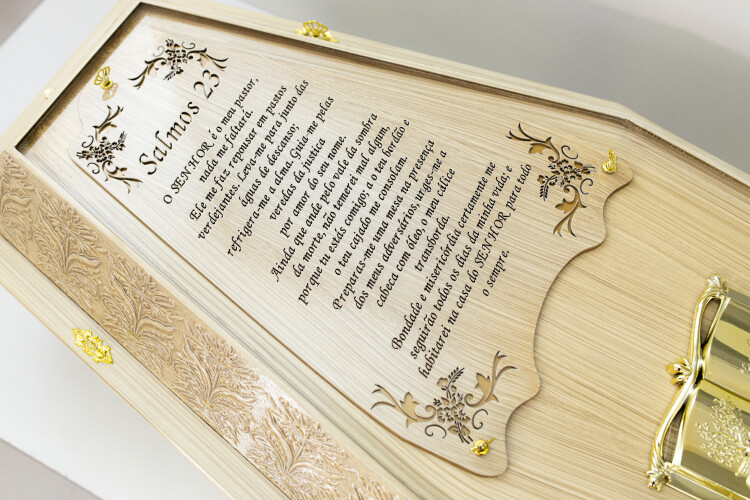 Salmos 23
O SENHOR é o meu pastor,
nada me faltará.
Ele me faz repousar em pastos
verdejantes. Leva-me para junto das
águas de descanso;
refrigera-me a alma. Guia-me pelas
veredas da justiça
por amor do seu nome.
Ainda que ande pelo vale da sombra
da morte, não temerei mal algum,
porque tu estás comigo; a o teu bordão e
o teu cajado me consolam.
Preparas-me uma mesa na presença
dos meus adversários, unges-me a
cabeca com óleo, o meu cálice
transborda.
Bondade e misericórdia certamente me
seguirão todos os dias da minha vida; e
habitarei na casa do SENHOR para todo
o sempre.